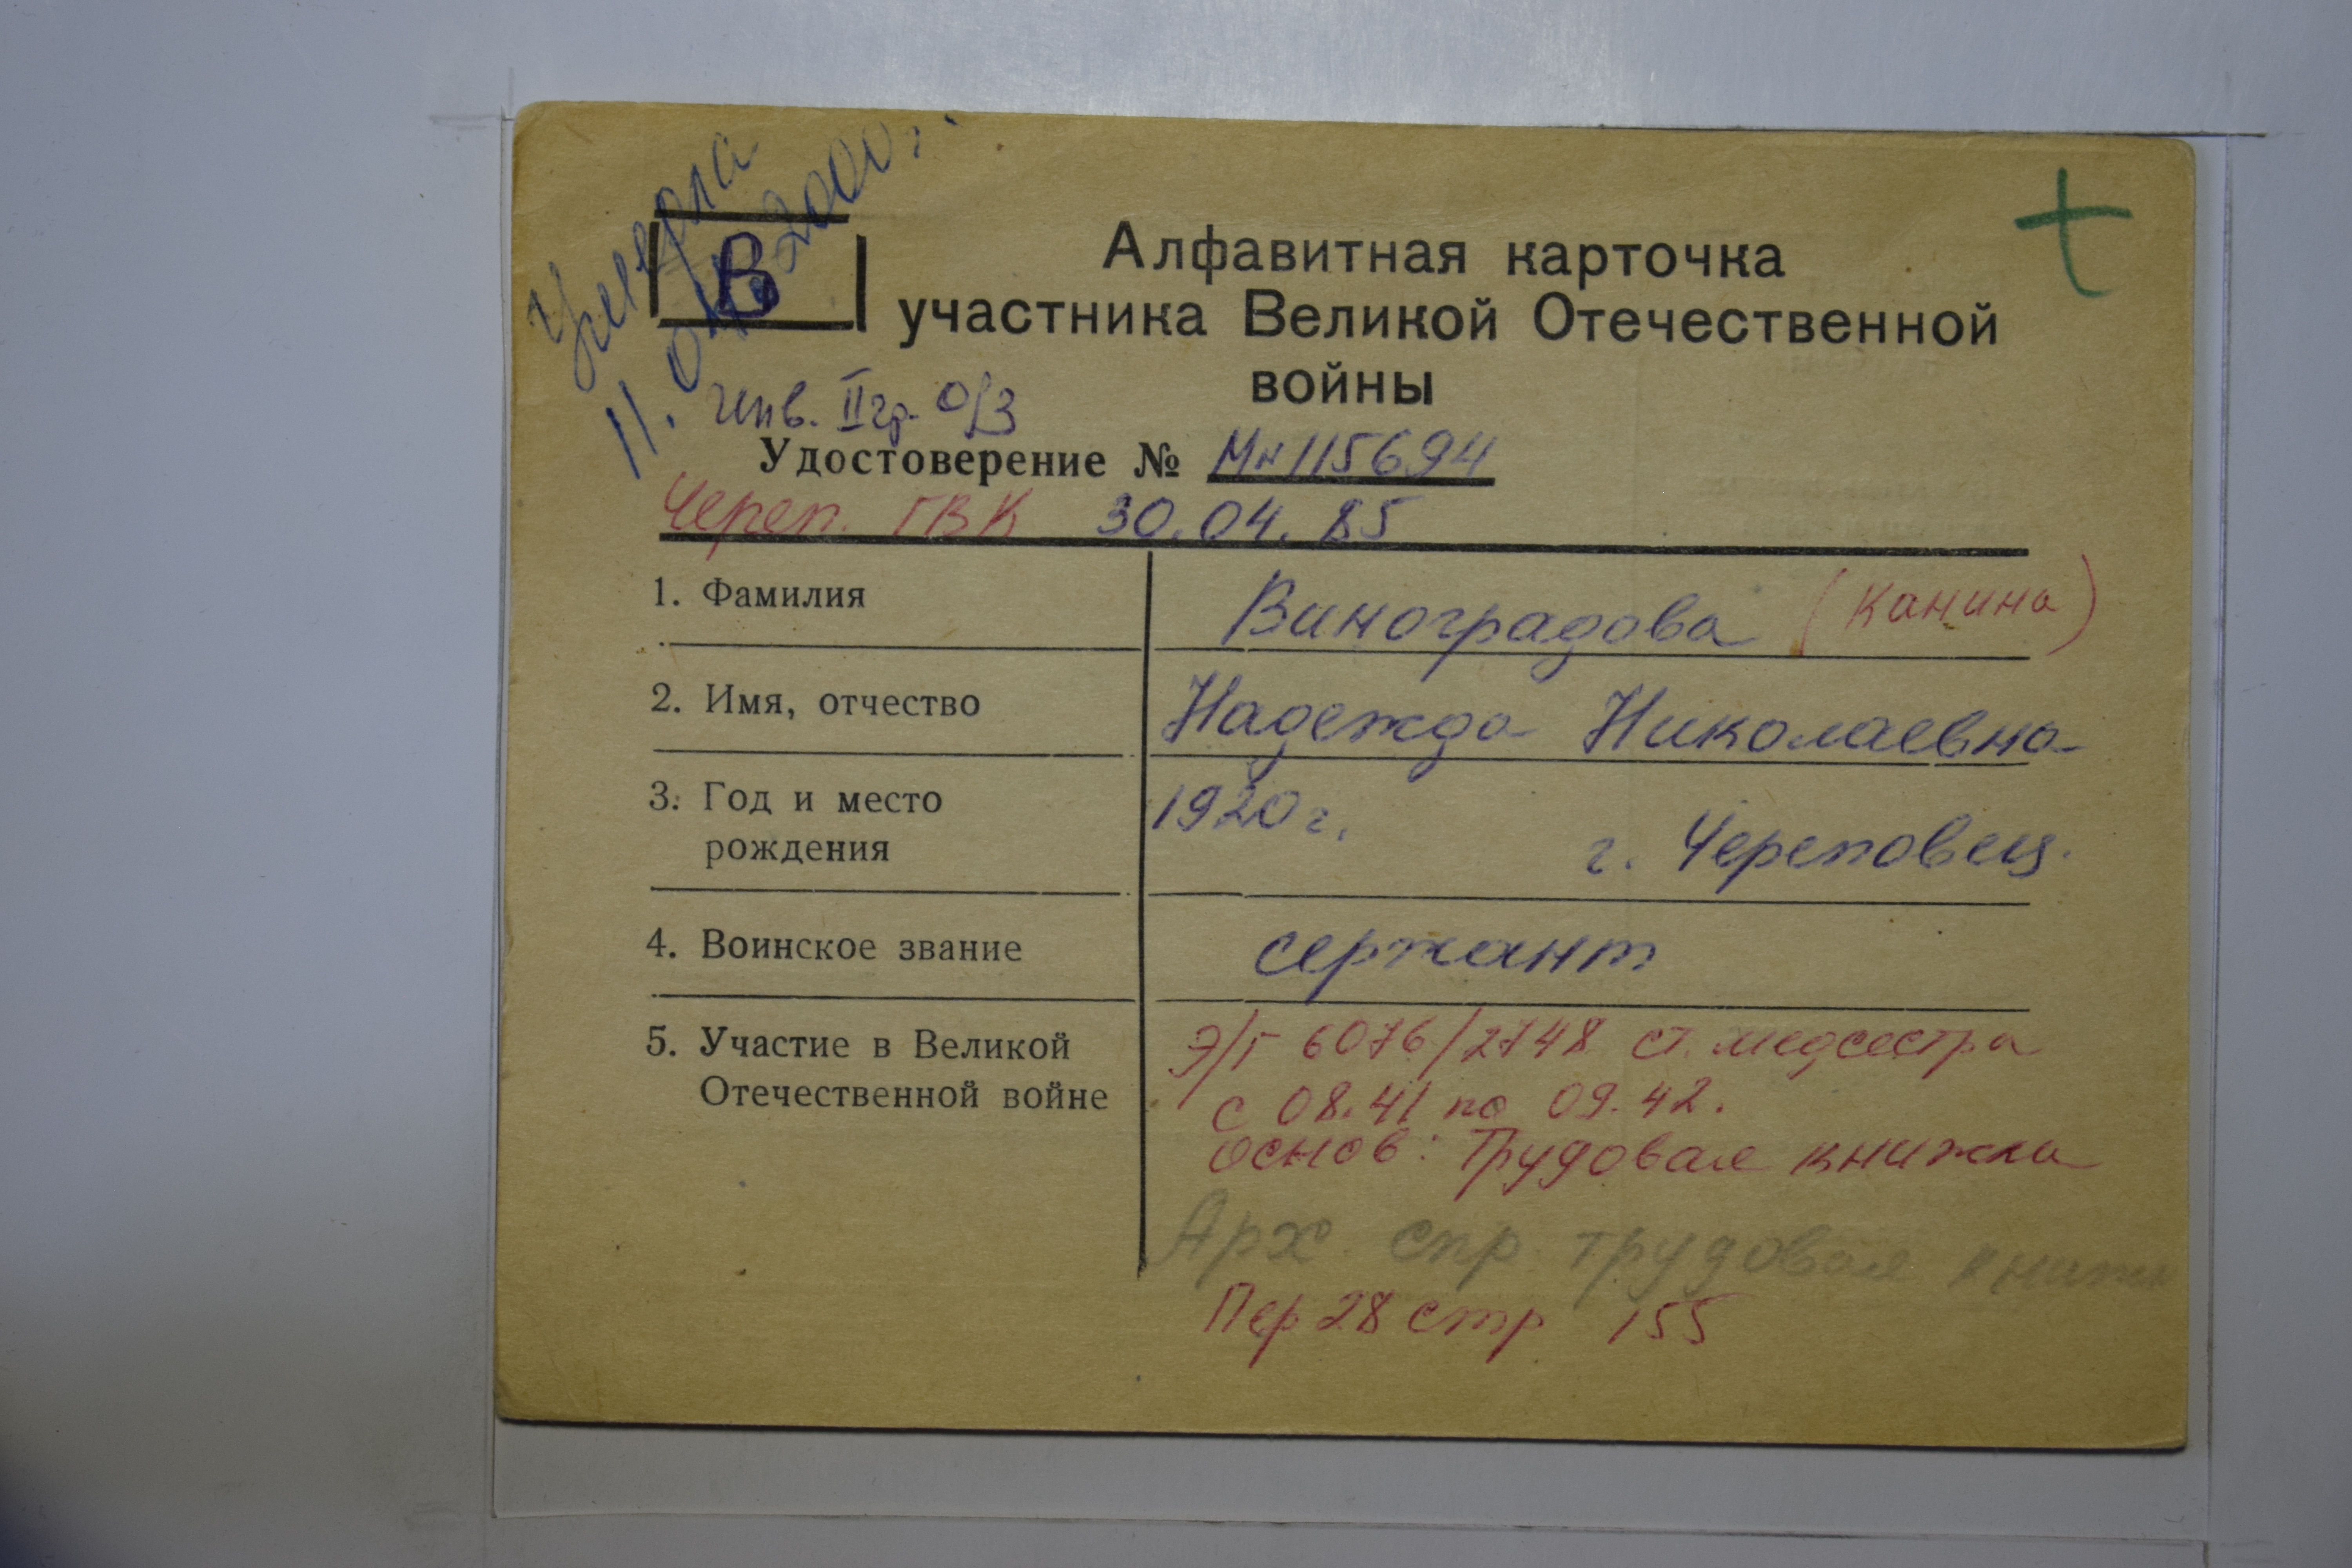 Умерла
11.04.2000г.
В
Алфавитная карточка
участника Великой Отечественной
войны
инв. II гр. о/з
Удостоверение № Мн 115694
Череп. ГВК 30.04.85
1. Фамилия
Виноградова (Канина)
2. Имя, отчество
Надежда Николаевна
3. Год и место
рождения
1920 г.
г. Череповец.
4. Воинское звание
сержант
5. Участие в Великой
Отечественной войне
Э/Г 6076/2748 ст. медсестра
с 08.41 по 09.42.
основ: Трудовая книжка
Арх спр трудовая
Пер 28 стр 155